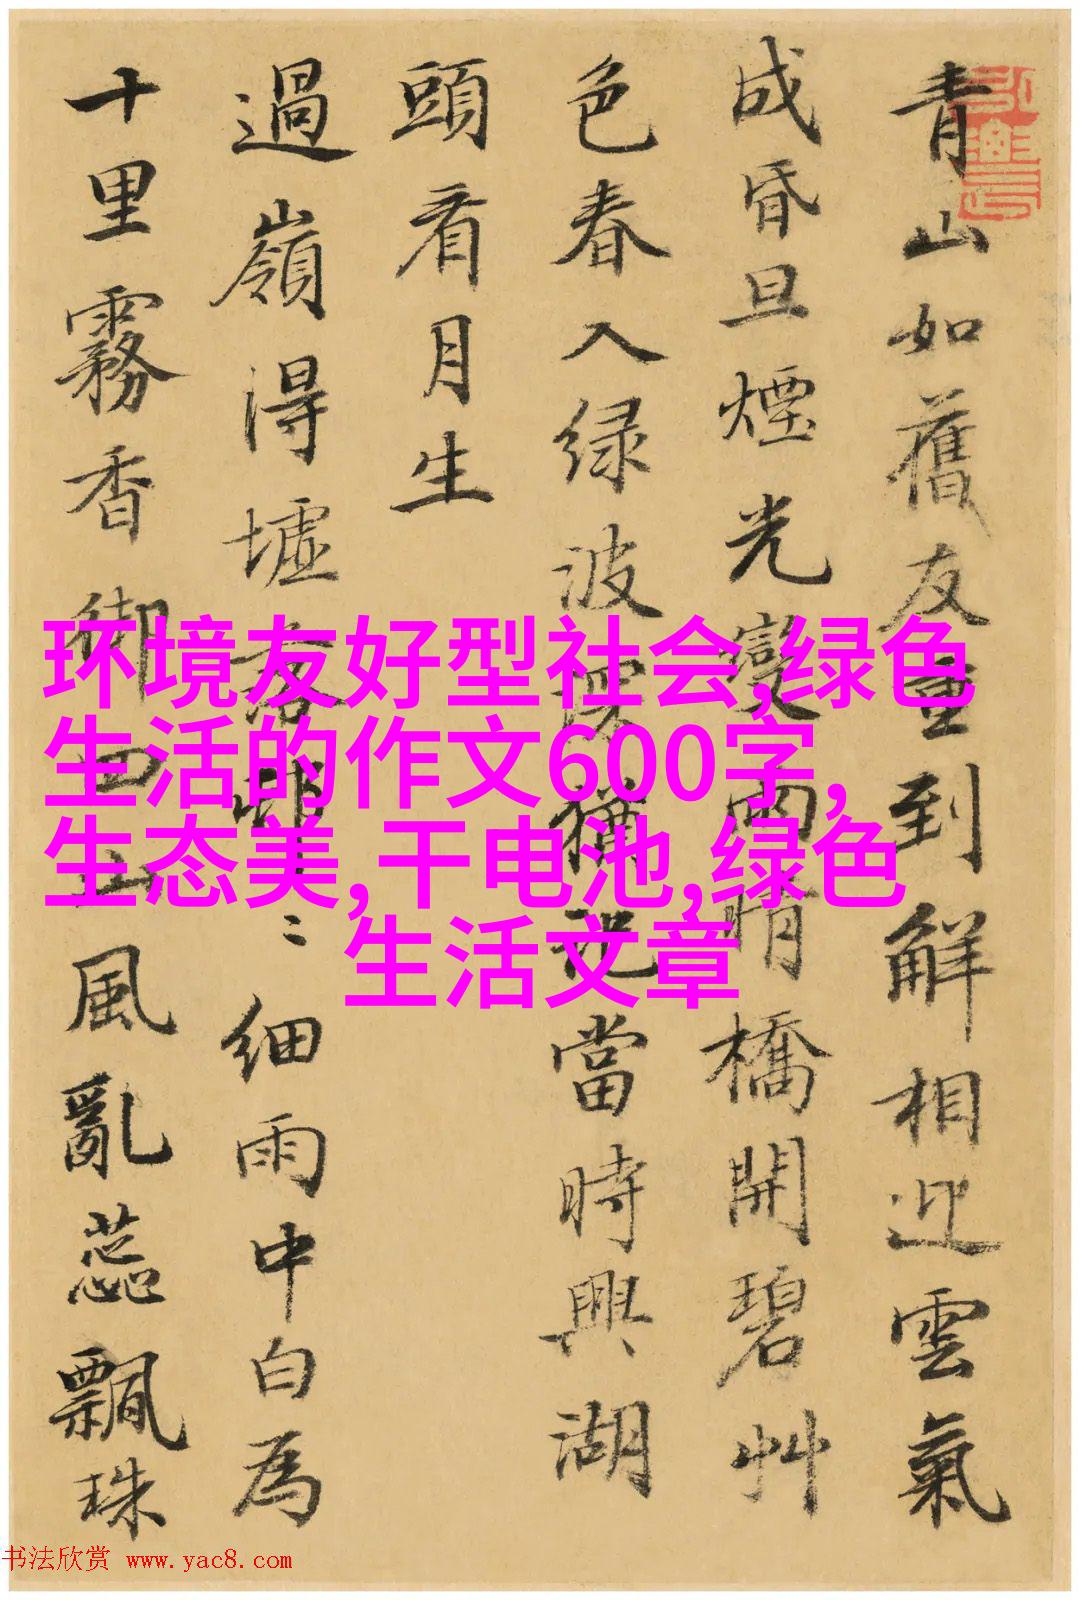 环境友好型社会,绿色
生活的作文600字,
生态美,干电池,绿色
生活文章
青山如舊友重到解相迎雲氣
成昏旦煙光變雨晴橋開碧艸
色春入绿波猶記當時興湖
頭看月生
過嶺得墟落邨細雨中白為
十里霧香御四山風亂蕊飄珠
书法欣赏 www.yac8.com